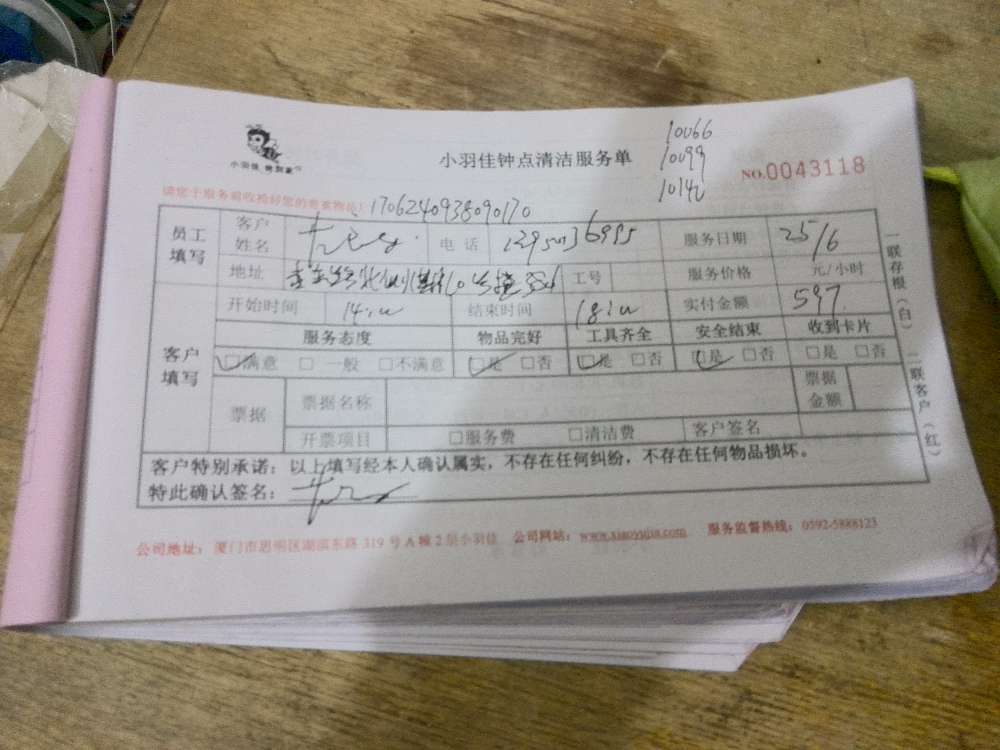 10066
小羽佳 特到家
小羽佳钟点清洁服务单
NO.0043118
请您于服务前收检好您的贵重物品!
1706240938090170
员工填写 客户姓名 电话 服务日期 25/6
地址 工号 服务价格 元/小时
开始时间 结束时间 实付金额 597
客户填写 服务态度 物品完好 工具齐全 安全结束 收到卡片
□满意 □一般 □不满意 □是 □否 □是 □否 □是 □否 □是 □否
票据 票据名称 票据金额
开票项目 □服务费 □清洁费 客户签名
客户特别承诺：以上填写经本人确认属实，不存在任何纠纷，不存在任何物品损坏。
特此确认签名：
公司地址：厦门市思明区湖滨东路 319 号 A 幢 2 层小羽佳 公司网站：www.xiaoyujia.com 服务监督热线：0592-5888123
一联存根（白）
一联客户（红）